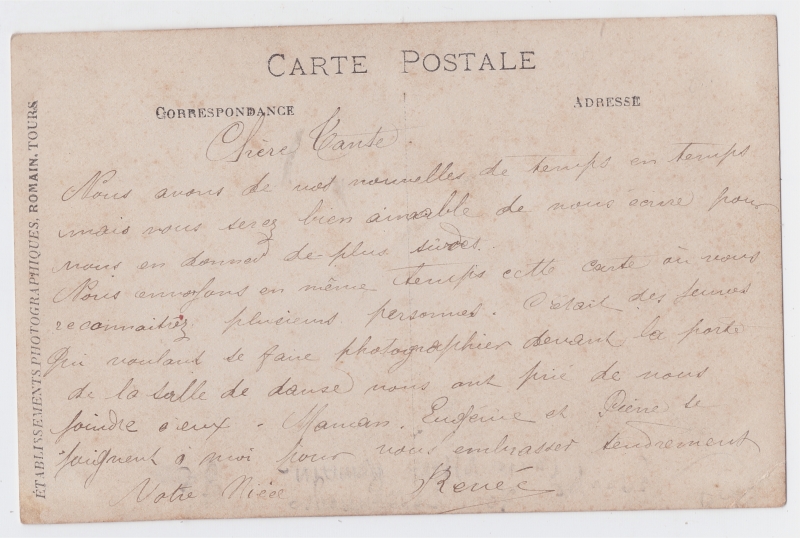 CARTE POSTALE
CORRESPONDANCE
ADRESSE
ÉTABLISSEMENTS PHOTOGRAPHIQUES. ROMAIN. TOURS
Chère Tante.
Nous avons de vos nouvelles de temps en temps
mais vous serez bien aimable de nous écrire pour
nous en donner de plus
Nous envoyons en même temps cette carte où vous
reconnaitrez plusieurs personnes. C'était des jeunes
qui voulant se faire photographier devant la porte
de la salle de danse nous ont prié de nous
joindre à eux. Maman, Eugénie et Pierre se
joignent à moi pour vous embrasser tendrement
Votre Nièce Renée